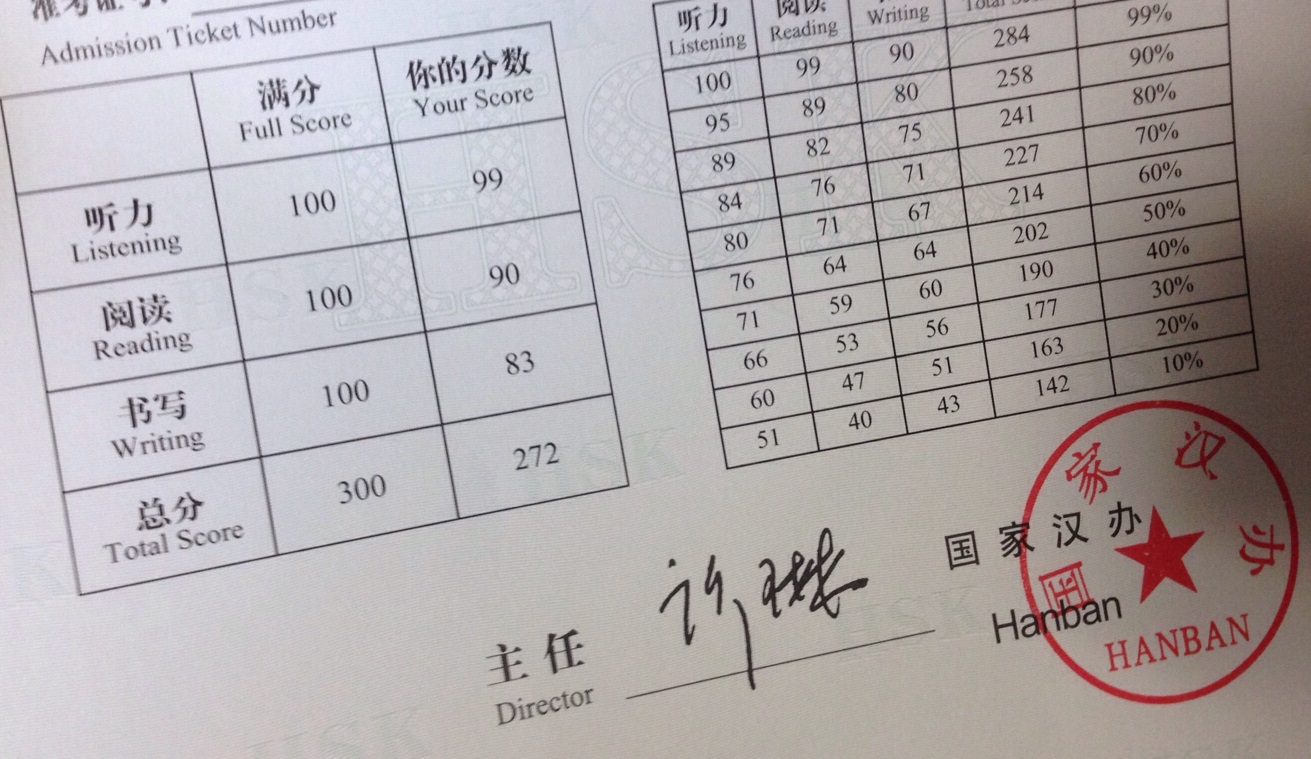 Admission Ticket Number
满分 你的分数
Full Score Your Score
听力 100 99
Listening
阅读 100 90
Reading
书写 100 83
Writing
总分 300 272
Total Score
听力 阅读
Listening Reading Writing Total
100 99 90 284 99%
95 89 80 258 90%
89 82 75 241 80%
84 76 71 227 70%
80 71 67 214 60%
76 64 64 202 50%
71 59 60 190 40%
66 53 56 177 30%
60 47 51 163 20%
51 40 43 142 10%
主任 许琳
Director
国家汉办
Hanban
国家汉办
HANBAN
HSK